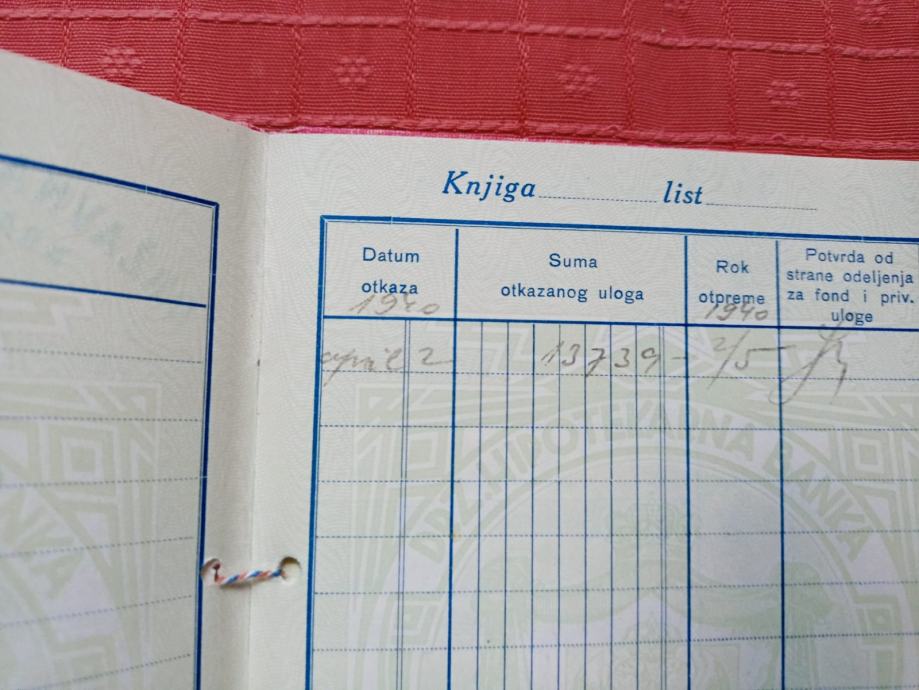 Knjiga list
Datum otkaza
Suma otkazanog uloga
Rok otpreme
Potvrda od strane odeljenja za fond i priv. uloge
1940
1940
april 2 13739 - 2/5
DRŽ. HIPOTEKARNA BANKA